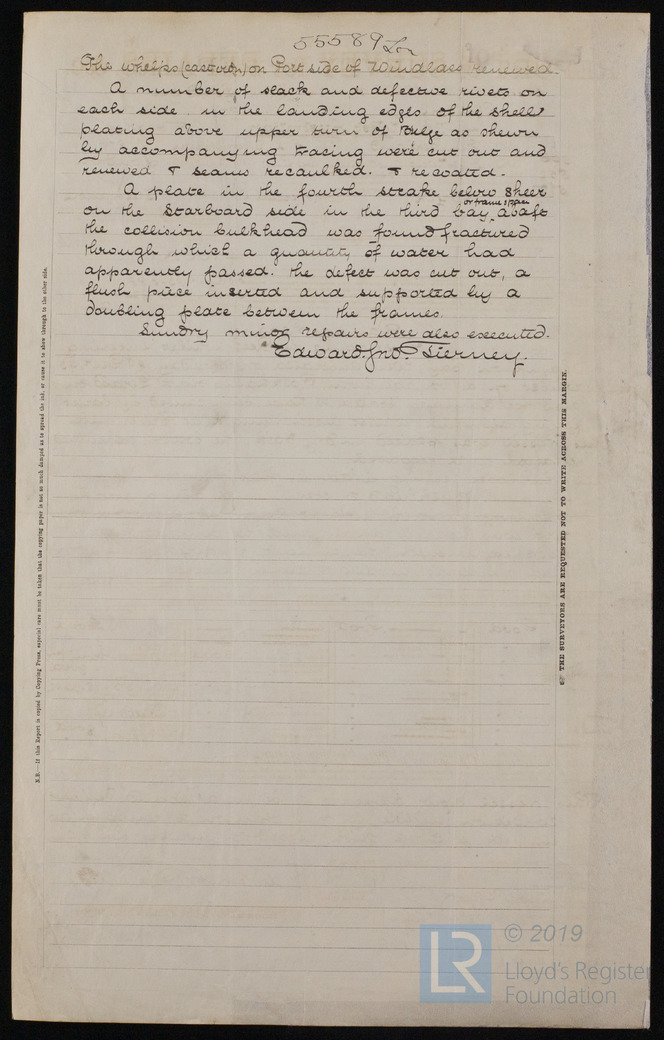 55589 Lon
The whelps (cast iron) on Port side of Windlass renewed.
A number of slack and defective rivets on
each side in the landing edges of the shell
plating above upper turn of bilge as shewn
by accompanying tracing were cut out and
renewed & seams recaulked. & recoated.
A plate in the fourth strake below sheer
or frame space
on the Starboard side in the third bay abaft
the collision bulkhead was found fractured
through which a quantity of water had
apparently passed. the defect was cut out, a
flush piece inserted and supported by a
doubling plate between the frames.
Sundry minor repairs were also executed.
Edward Jno. Tierney.
N.B.—If this Report is copied by Copying Press, especial care must be taken that the copying paper is not so much damped as to spread the ink, or cause it to show through to the other side.
THE SURVEYORS ARE REQUESTED NOT TO WRITE ACROSS THIS MARGIN.
LR
© 2019
Lloyd's Register
Foundation